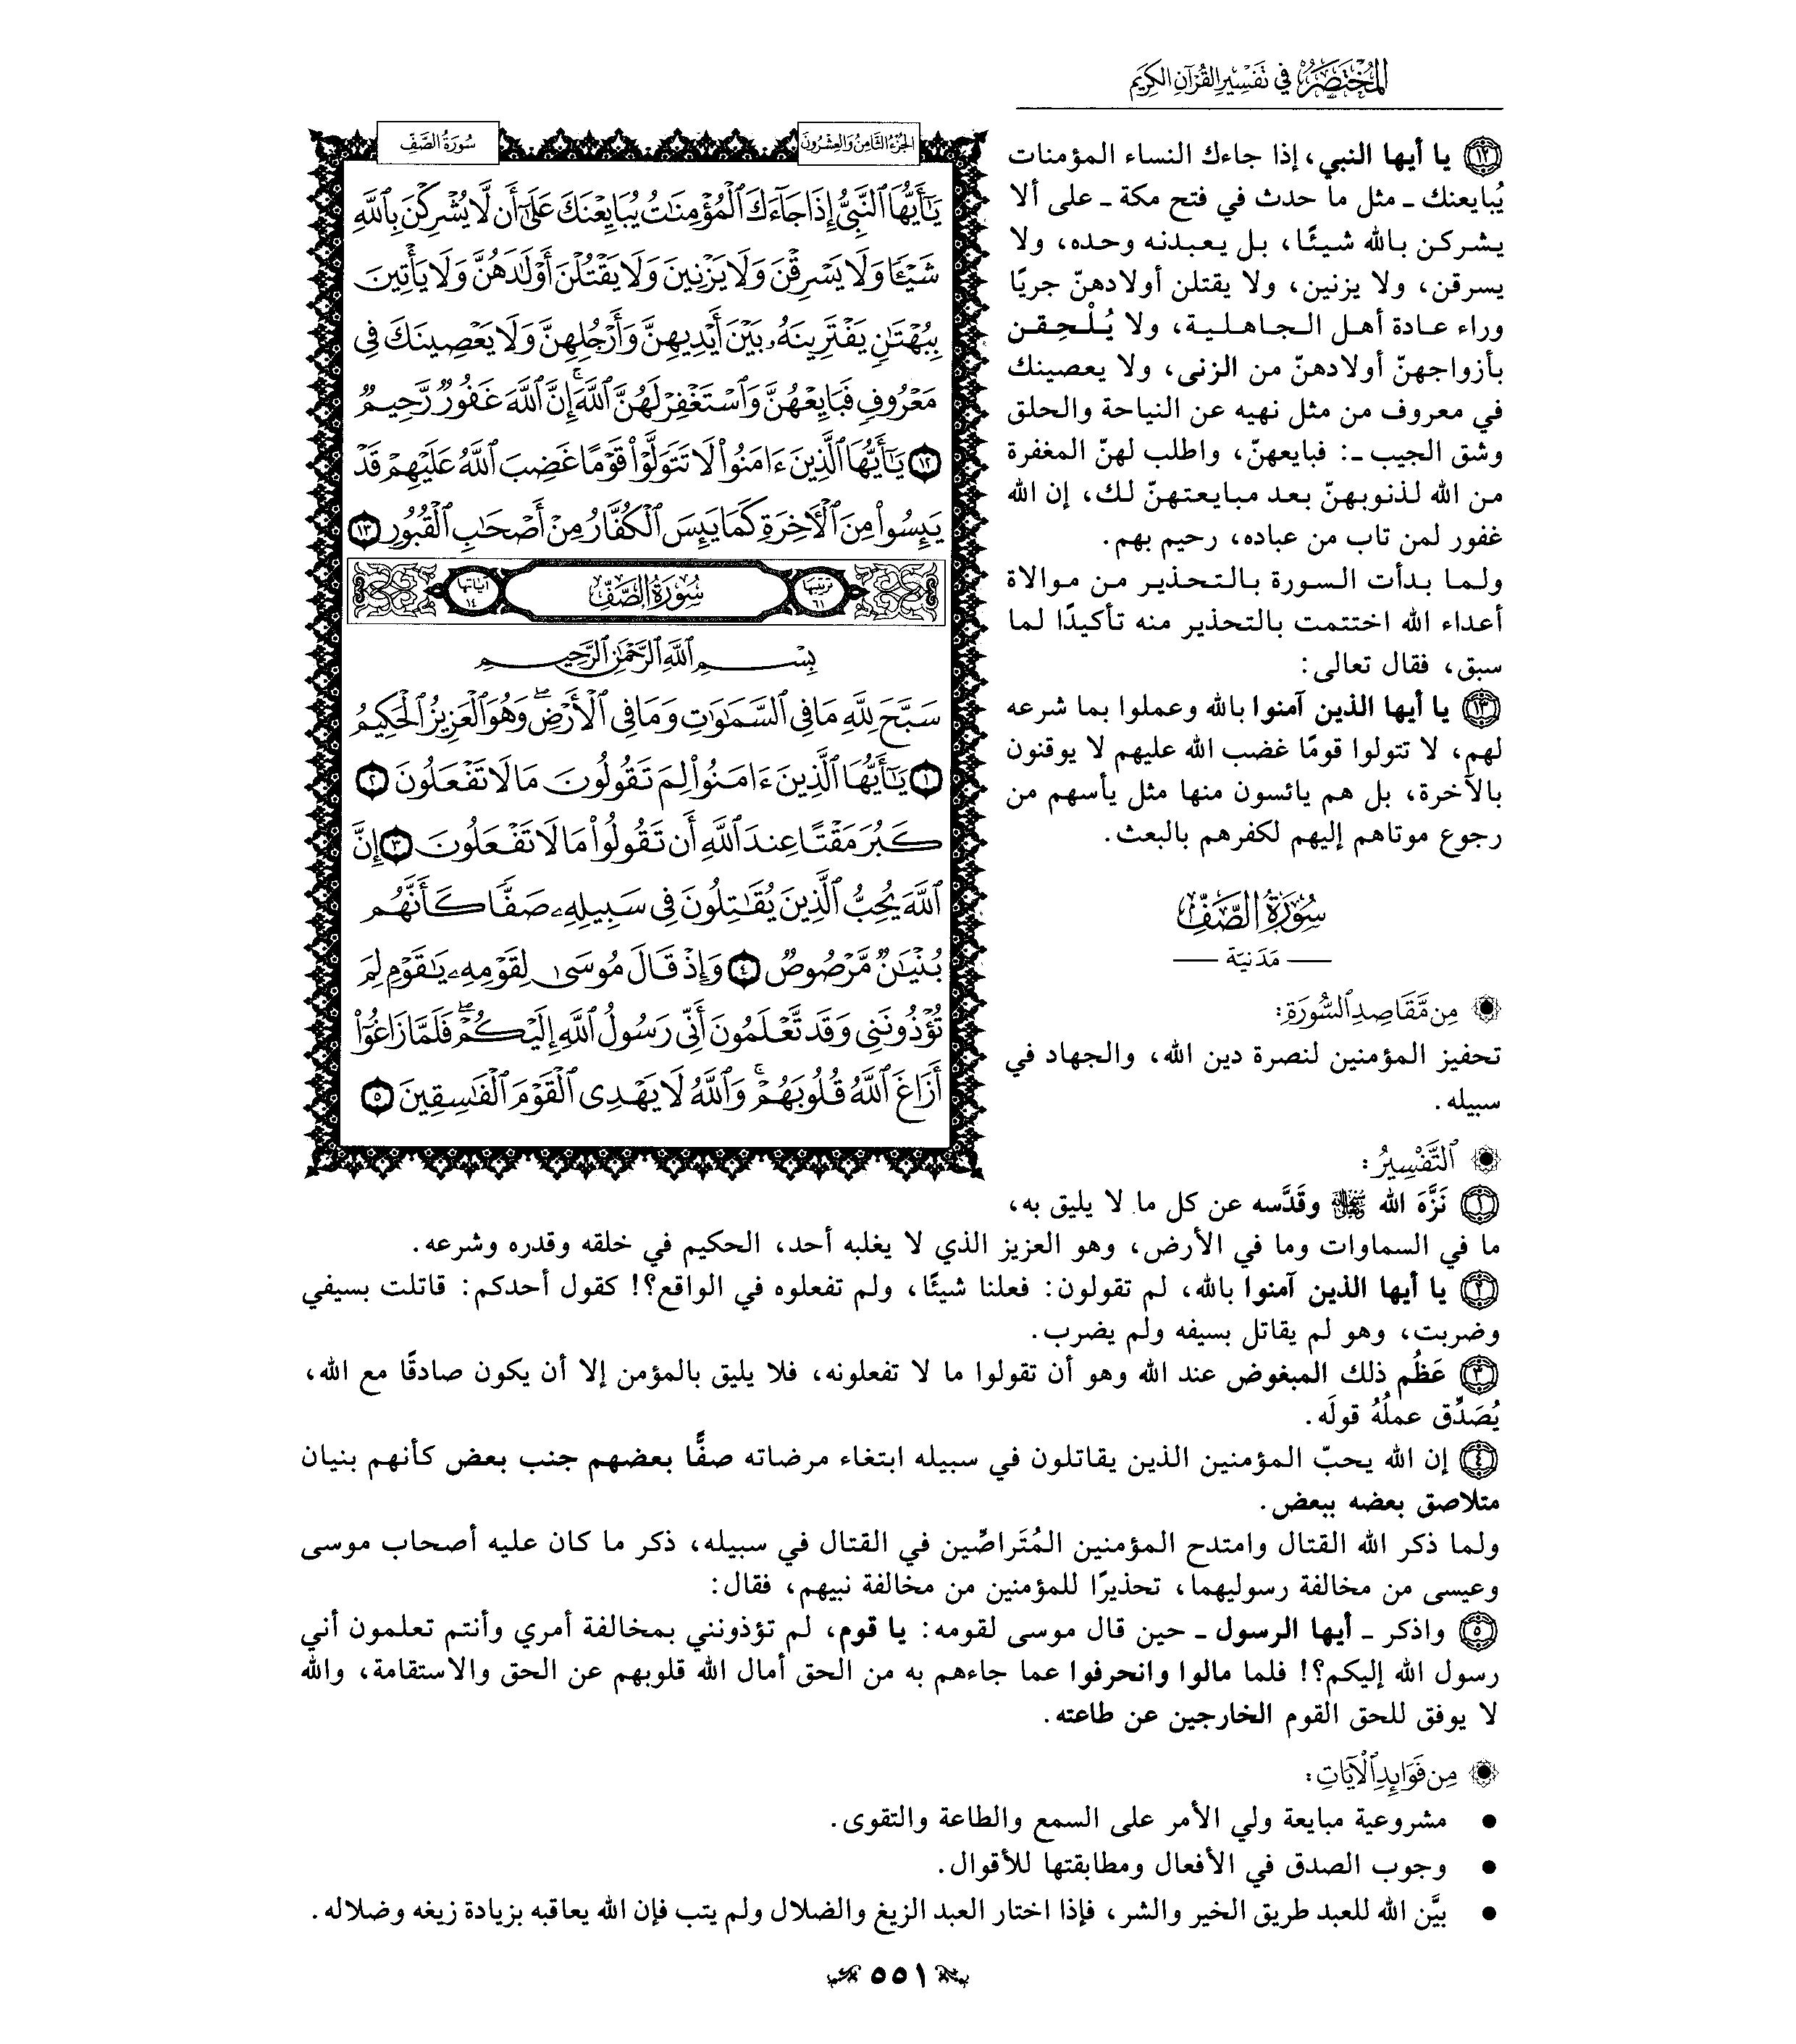 المختصر في تفسير القرآن الكريم
الجزء الثامن والعشرون
سورة الصف
يَٰٓأَيُّهَا ٱلنَّبِيُّ إِذَا جَآءَكَ ٱلْمُؤْمِنَٰتُ يُبَايِعْنَكَ عَلَىٰٓ أَن لَّا يُشْرِكْنَ بِٱللَّهِ
شَيْـًٔا وَلَا يَسْرِقْنَ وَلَا يَزْنِينَ وَلَا يَقْتُلْنَ أَوْلَٰدَهُنَّ وَلَا يَأْتِينَ
بِبُهْتَٰنٍ يَفْتَرِينَهُۥ بَيْنَ أَيْدِيهِنَّ وَأَرْجُلِهِنَّ وَلَا يَعْصِينَكَ فِى
مَعْرُوفٍ فَبَايِعْهُنَّ وَٱسْتَغْفِرْ لَهُنَّ ٱللَّهَ ۚ إِنَّ ٱللَّهَ غَفُورٌ رَّحِيمٌ
١٢ يَٰٓأَيُّهَا ٱلَّذِينَ ءَامَنُوا۟ لَا تَتَوَلَّوْا۟ قَوْمًا غَضِبَ ٱللَّهُ عَلَيْهِمْ قَدْ
يَئِسُوا۟ مِنَ ٱلْءَاخِرَةِ كَمَا يَئِسَ ٱلْكُفَّارُ مِنْ أَصْحَٰبِ ٱلْقُبُورِ ١٣
ترتيبها ٦١ سُورَةُ الصَّفِّ آياتها ١٤
بِسْمِ ٱللَّهِ ٱلرَّحْمَٰنِ ٱلرَّحِيمِ
سَبَّحَ لِلَّهِ مَا فِى ٱلسَّمَٰوَٰتِ وَمَا فِى ٱلْأَرْضِ ۖ وَهُوَ ٱلْعَزِيزُ ٱلْحَكِيمُ
١ يَٰٓأَيُّهَا ٱلَّذِينَ ءَامَنُوا۟ لِمَ تَقُولُونَ مَا لَا تَفْعَلُونَ ٢
كَبُرَ مَقْتًا عِندَ ٱللَّهِ أَن تَقُولُوا۟ مَا لَا تَفْعَلُونَ ٣ إِنَّ
ٱللَّهَ يُحِبُّ ٱلَّذِينَ يُقَٰتِلُونَ فِى سَبِيلِهِۦ صَفًّا كَأَنَّهُم
بُنْيَٰنٌ مَّرْصُوصٌ ٤ وَإِذْ قَالَ مُوسَىٰ لِقَوْمِهِۦ يَٰقَوْمِ لِمَ
تُؤْذُونَنِى وَقَد تَّعْلَمُونَ أَنِّى رَسُولُ ٱللَّهِ إِلَيْكُمْ ۖ فَلَمَّا زَاغُوٓا۟
أَزَاغَ ٱللَّهُ قُلُوبَهُمْ ۚ وَٱللَّهُ لَا يَهْدِى ٱلْقَوْمَ ٱلْفَٰسِقِينَ ٥
١٢ يا أيها النبي، إذا جاءك النساء المؤمنات
يُبايعنك ـ مثل ما حدث في فتح مكة ـ على ألا
يشركن بالله شيئًا، بل يعبدنه وحده، ولا
يسرقن، ولا يزنين، ولا يقتلن أولادهنّ جريًا
وراء عادة أهل الجاهلية، ولا يُلْحِقن
بأزواجهنّ أولادهنّ من الزنى، ولا يعصينك
في معروف من مثل نهيه عن النياحة والحلق
وشق الجيب ـ: فبايعهنّ، واطلب لهنّ المغفرة
من الله لذنوبهنّ بعد مبايعتهنّ لك، إن الله
غفور لمن تاب من عباده، رحيم بهم.
ولما بدأت السورة بالتحذير من موالاة
أعداء الله اختتمت بالتحذير منه تأكيدًا لما
سبق، فقال تعالى:
١٣ يا أيها الذين آمنوا بالله وعملوا بما شرعه
لهم، لا تتولوا قومًا غضب الله عليهم لا يوقنون
بالآخرة، بل هم يائسون منها مثل يأسهم من
رجوع موتاهم إليهم لكفرهم بالبعث.
سُورَةُ الصَّفِّ
مَدَنيّة
مِن مَّقَاصِدِ ٱلسُّورَةِ:
تحفيز المؤمنين لنصرة دين الله، والجهاد في
سبيله.
ٱلتَّفْسِيرُ:
١ نَزَّهَ الله ﷾ وقَدَّسه عن كل ما لا يليق به،
ما في السماوات وما في الأرض، وهو العزيز الذي لا يغلبه أحد، الحكيم في خلقه وقدره وشرعه.
٢ يا أيها الذين آمنوا بالله، لم تقولون: فعلنا شيئًا، ولم تفعلوه في الواقع؟! كقول أحدكم: قاتلت بسيفي
وضربت، وهو لم يقاتل بسيفه ولم يضرب.
٣ عَظُم ذلك المبغوض عند الله وهو أن تقولوا ما لا تفعلونه، فلا يليق بالمؤمن إلا أن يكون صادقًا مع الله،
يُصَدِّق عملُهُ قولَه.
٤ إن الله يحبّ المؤمنين الذين يقاتلون في سبيله ابتغاء مرضاته صفًّا بعضهم جنب بعض كأنهم بنيان
متلاصق بعضه ببعض.
ولما ذكر الله القتال وامتدح المؤمنين المُتَراصِّين في القتال في سبيله، ذكر ما كان عليه أصحاب موسى
وعيسى من مخالفة رسوليهما، تحذيرًا للمؤمنين من مخالفة نبيهم، فقال:
٥ واذكر ـ أيها الرسول ـ حين قال موسى لقومه: يا قوم، لم تؤذونني بمخالفة أمري وأنتم تعلمون أني
رسول الله إليكم؟! فلما مالوا وانحرفوا عما جاءهم به من الحق أمال الله قلوبهم عن الحق والاستقامة، والله
لا يوفق للحق القوم الخارجين عن طاعته.
مِن فَوَائِدِ ٱلْآيَاتِ:
● مشروعية مبايعة ولي الأمر على السمع والطاعة والتقوى.
● وجوب الصدق في الأفعال ومطابقتها للأقوال.
● بيَّن الله للعبد طريق الخير والشر، فإذا اختار العبد الزيغ والضلال ولم يتب فإن الله يعاقبه بزيادة زيغه وضلاله.
٥٥١